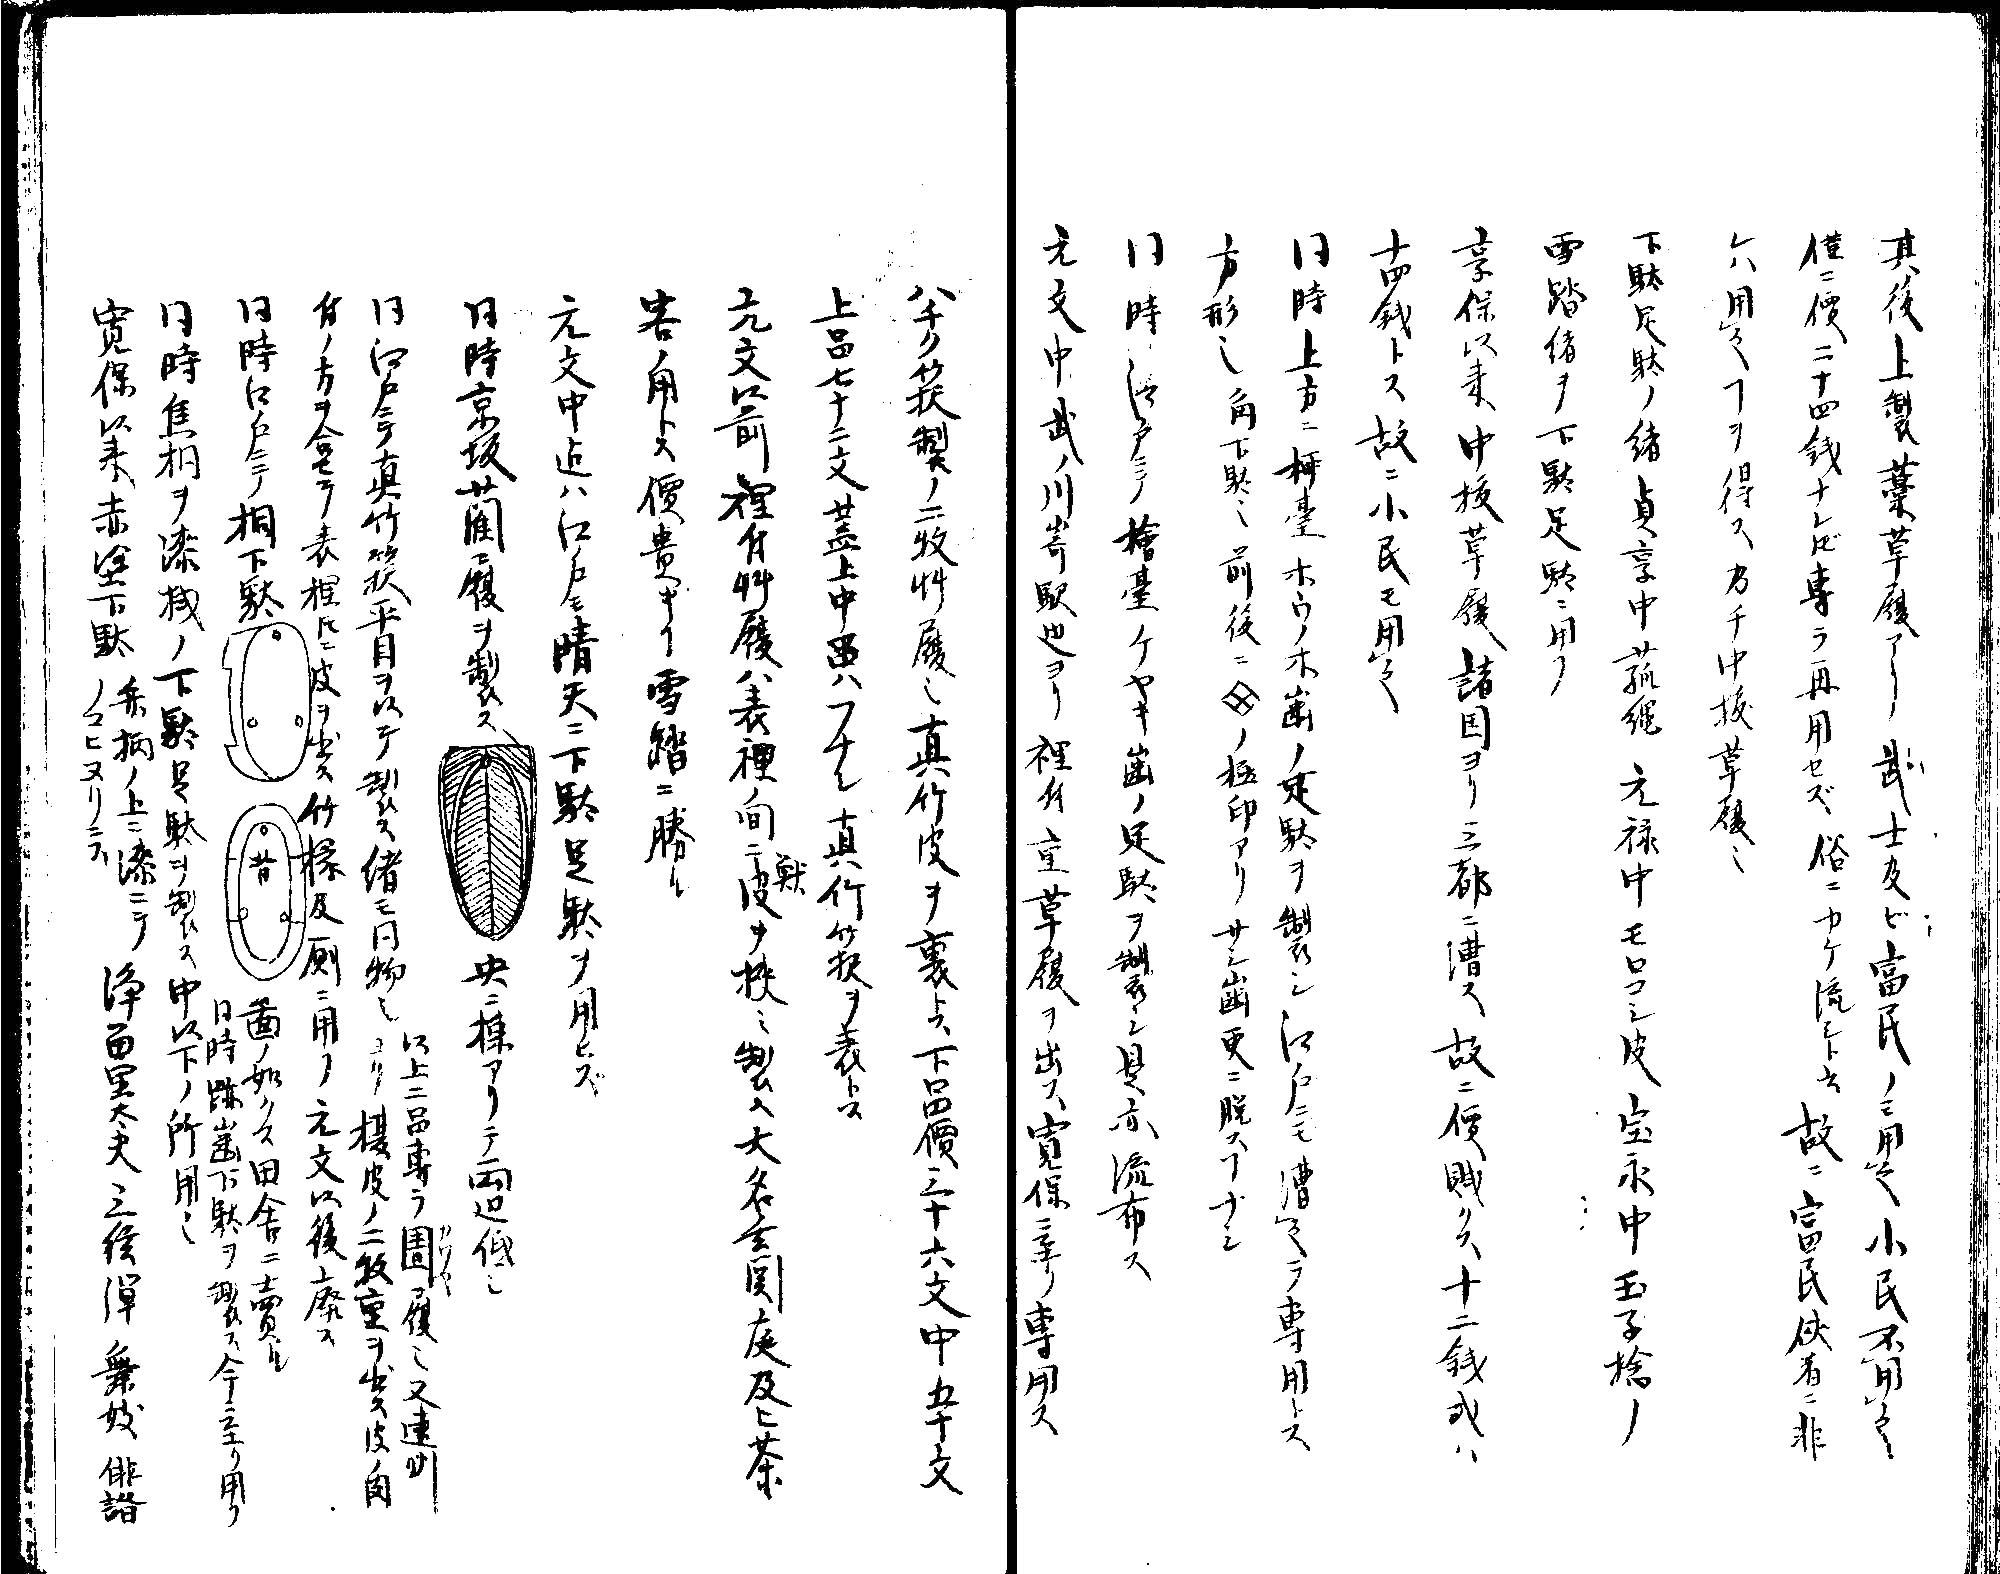 其後上製藁草履アリ武士及ビ富民ノミ用之小民不用之
僅ニ價二十四銭ナレドモ専ラ再用セズ俗ニカケ流シト云故ニ富民侠者ニ非
ハ用之ヿヲ得ス乃チ中抜草履ミ
下駄足駄ノ緒貞享中菰縄元禄中モロコシ皮宝永中玉子捻ノ
雪踏緒ヲ下駄足駄ニ用フ
享保以来中抜草履諸国ヨリ三都ニ漕ス故ニ價賎クス十二銭或ハ
十四銭トス故ニ小民モ用之
同時上方ニ樫臺ホウノ木歯ノ足駄ヲ製シ江戸ニモ漕之テ専用トス
方形ミ角下駄ミ前後ニノ極印アリサシ歯更ニ脱スヿナシ
同時江戸ニテ檜臺ケヤキ歯ノ足駄ヲ製シ是亦流布ス
元文中武ノ川崎駅辺ヨリ裡付重草履ヲ出ス寛保ニ至リ専用ス
ハチク籜製ノ二枚艸履ミ真竹皮ヲ裏トス下品價三十六文中五十文
上品七十二文甚上中品ハフナシ真竹籜ヲ表トス
元文以前裡付艸履ハ表裡ノ間ニ獣皮ヲ挟ミ製ス大名玄関庭及ヒ茶
客ノ用トス價貴キヿ雪踏ニ勝ル
元文中迄ハ江戸モ晴天ニ下駄足駄ヲ用ヒズ
同時京坂藺履ヲ製ス央ニ様アリテ両辺低ミ
同江戸ニテ真竹籜平目ヲ以テ製ス緒モ同物ミ以上二品専ラ圊履ミ又連
付ノ方ヲ合セテ表裡トモニ皮ヲ出ス竹椽及厠ニ用フ元文以後廃ス
同時江戸ニテ桐下駄昔圖ノ如クス田舎ニ賣ル
同時跡歯下駄ヲ製ス今ニ至リ用フ
同時焦桐ヲ漆拭ノ下駄足駄ヲ製ス中以下ノ所用ミ
寛保以来赤塗下駄赤柄ノ上ニ漆ニテノコヒヌリニス浄留里太夫三絃弾舞妓俳諧